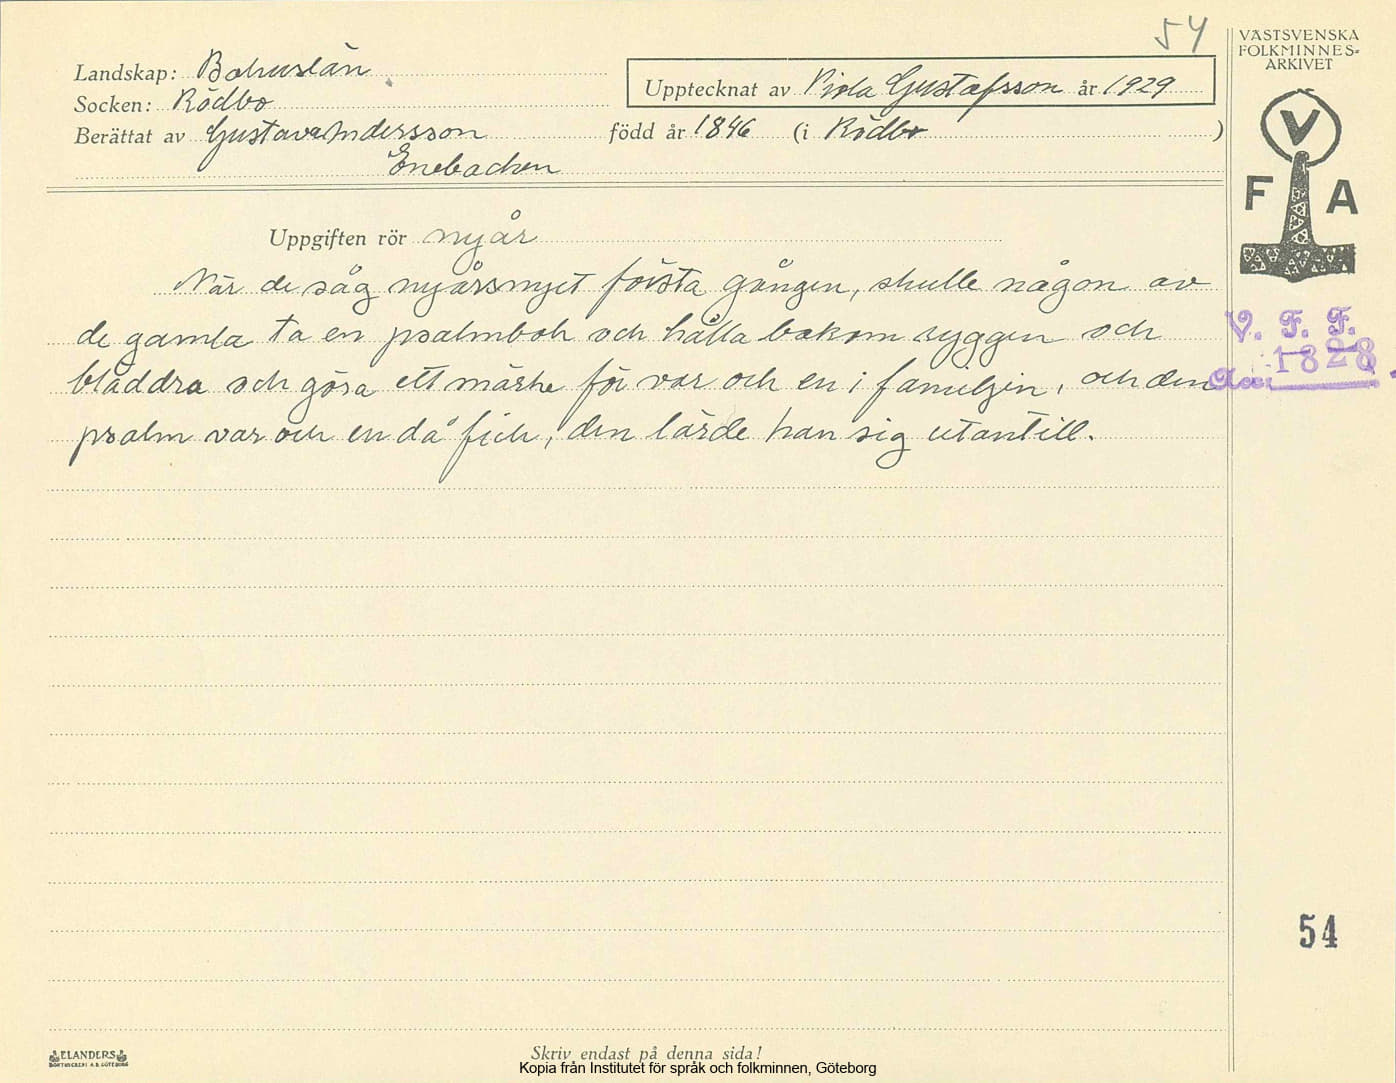 54
VÄSTSVENSKA
FOLKMINNES-
ARKIVET
Landskap: Bohuslän
Upptecknat av Viola Gustafsson år 1929
Socken: Rödbo
Berättat av Gustava Andersson född år 1846 (i Rödbo)
Enebacken
V
F A
Uppgiften rör nyår
När de såg nyårsnyet första gången, skulle någon av
de gamla ta en psalmbok och hålla bakom ryggen och
bläddra och göra ett märke för var och en i familjen, och den
psalm var och en då fick, den lärde han sig utantill.
V. F. F.
1828
54
ELANDERS
BOKTRYCKERI A.B. GÖTEBORG
Skriv endast på denna sida!
Kopia från Institutet för språk och folkminnen, Göteborg